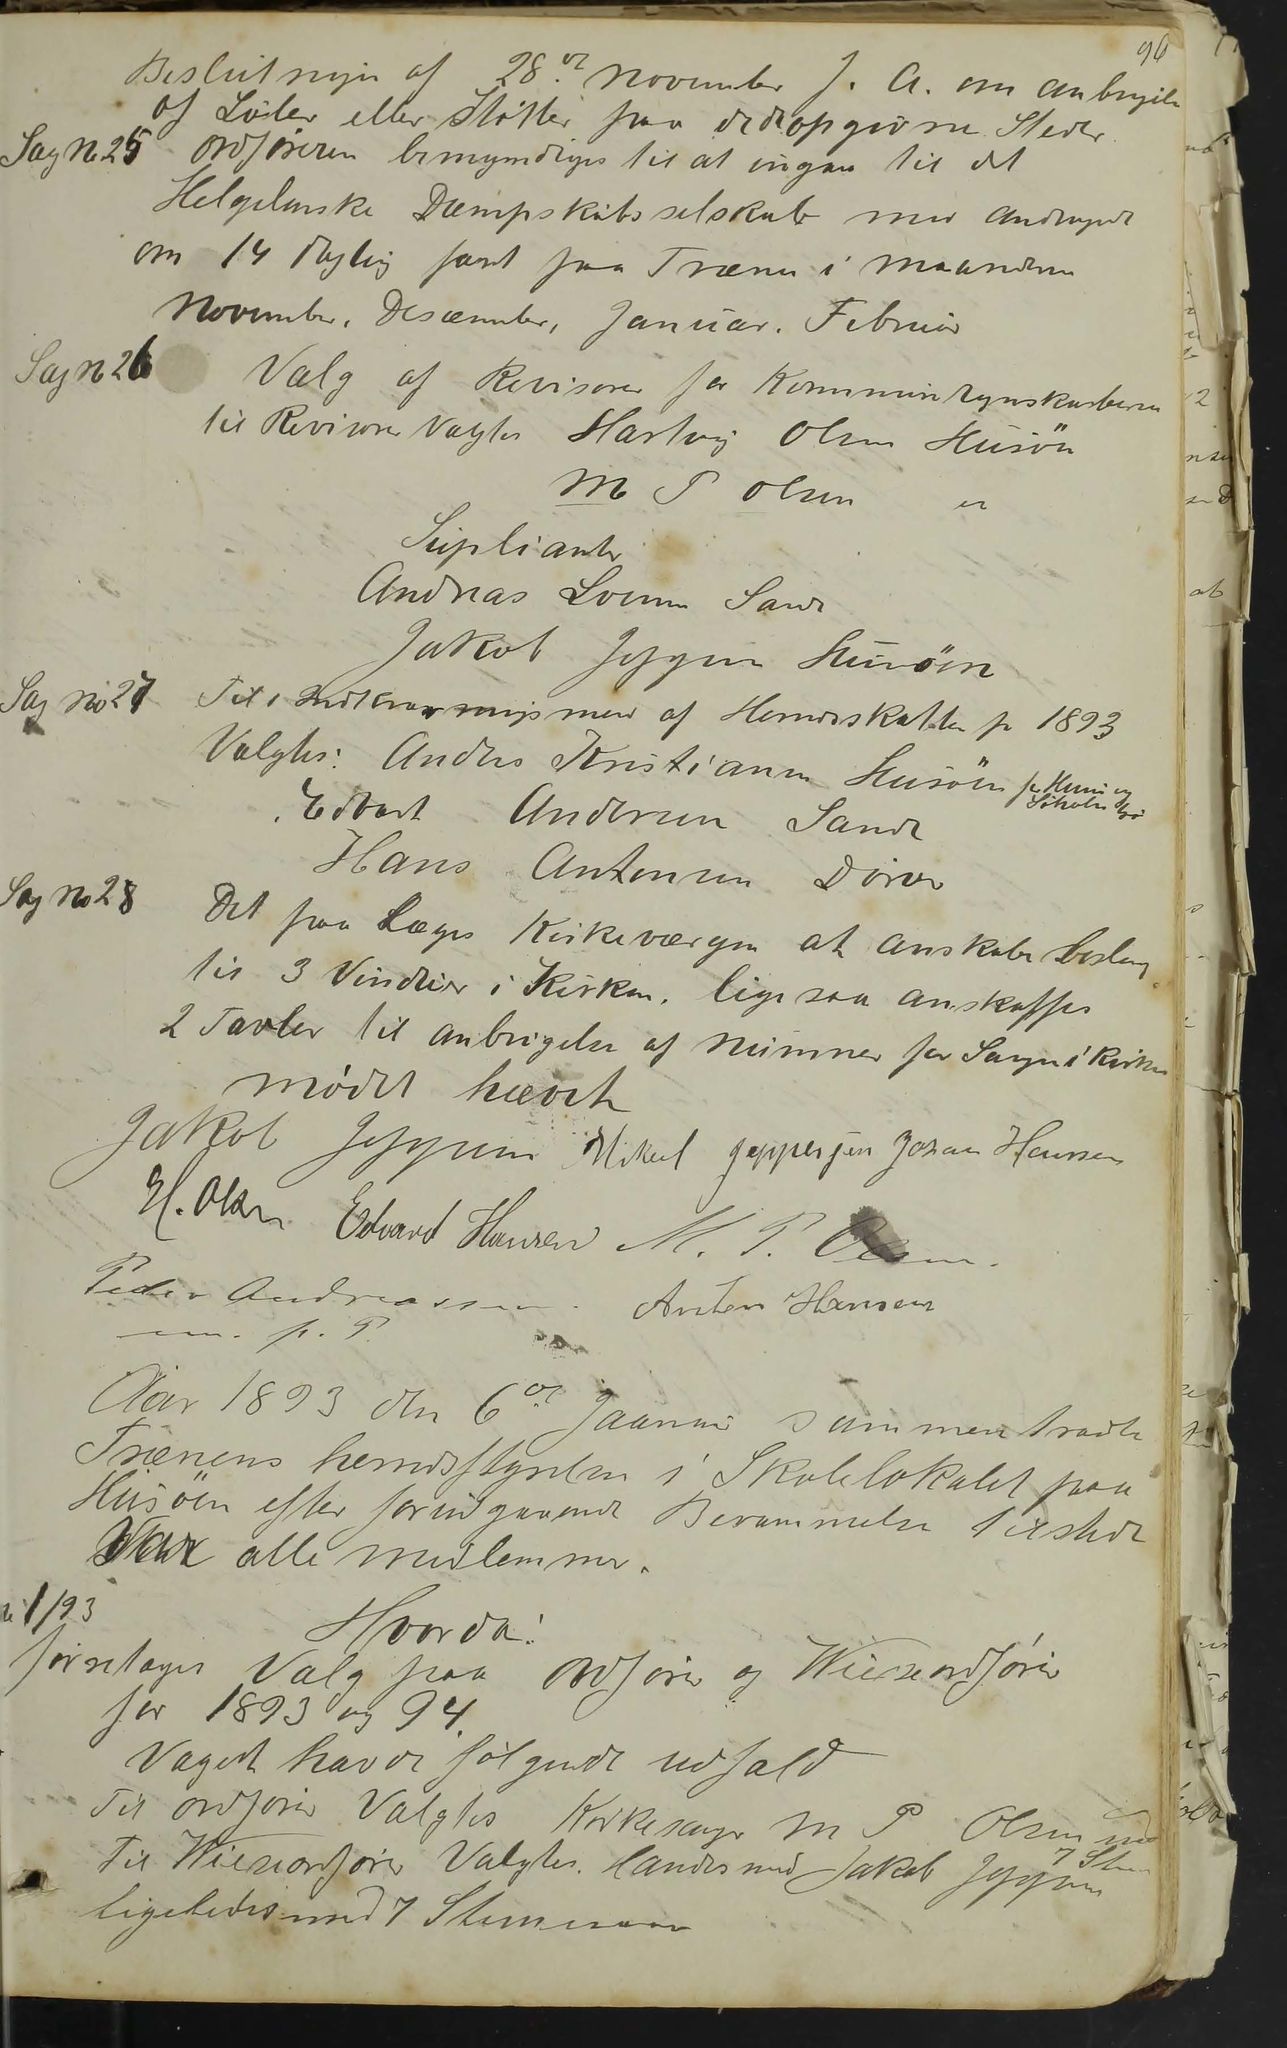 96
Beslutnign af 28de november f. A. om anbrigelse
af Søiler eller Støtter paa de deropgivne Steder.
Sag No 25 ordføreren bemyndiges til at ingaa til det
Helgelanske Dæmpskibsselskab med andragende
om 14 daglig fart paa Træna i maanderne
november, Desæmber, Januar, Februar
Sag No 26 Valg af Revisorer for Kommuneregnskaberne
til Revisorer Valgtes Hartvig Olsen Husøen
M P Olsen "
Suplianter
Andreas Sand
Jakob Jeppsen Husøen
Sag No 27 Til Indkrævningsmænd af Herredsskatten for 1893
Valgtes: Anders Kristiansen Husøen for Husø og
Edvart Andersen Sande
Hans Antonsen Dørvær
Sag No 28 Det paa Læges Kirkeværgen at anskafe beslag
til 3 Vinduer i Kirken. lige saa anskaffes
2 Tavler til anbrigelse af nummer for Sangen i Kirken
mødet hævet
Jakob Jeppsen Mikal Jeppesen Johan Hansen
H. Olsen Edvard Hansen M. P. Olsen.
Peder Andreassen. Anton Hansen
m. p. P.
Aar 1893 den 6de Jaanuar sammentraadte
Trænens herredsstyrelse i Skolelokalet paa
Husøen efter forudgaaende Berammelse tilstede
Var alle medlemmer.
1/93
Hvorda:
foretages Valg paa ordfører og Wiseordfører
for 1893 og 94.
Vaget havde følgende udfald
Til ordfører Valgtes Kirkesanger M P Olsen med
7 Stem
Til Wiseordfører Valgtes. Handelsmand Jakob Jeppsen
ligeledes med 7 Stemmer